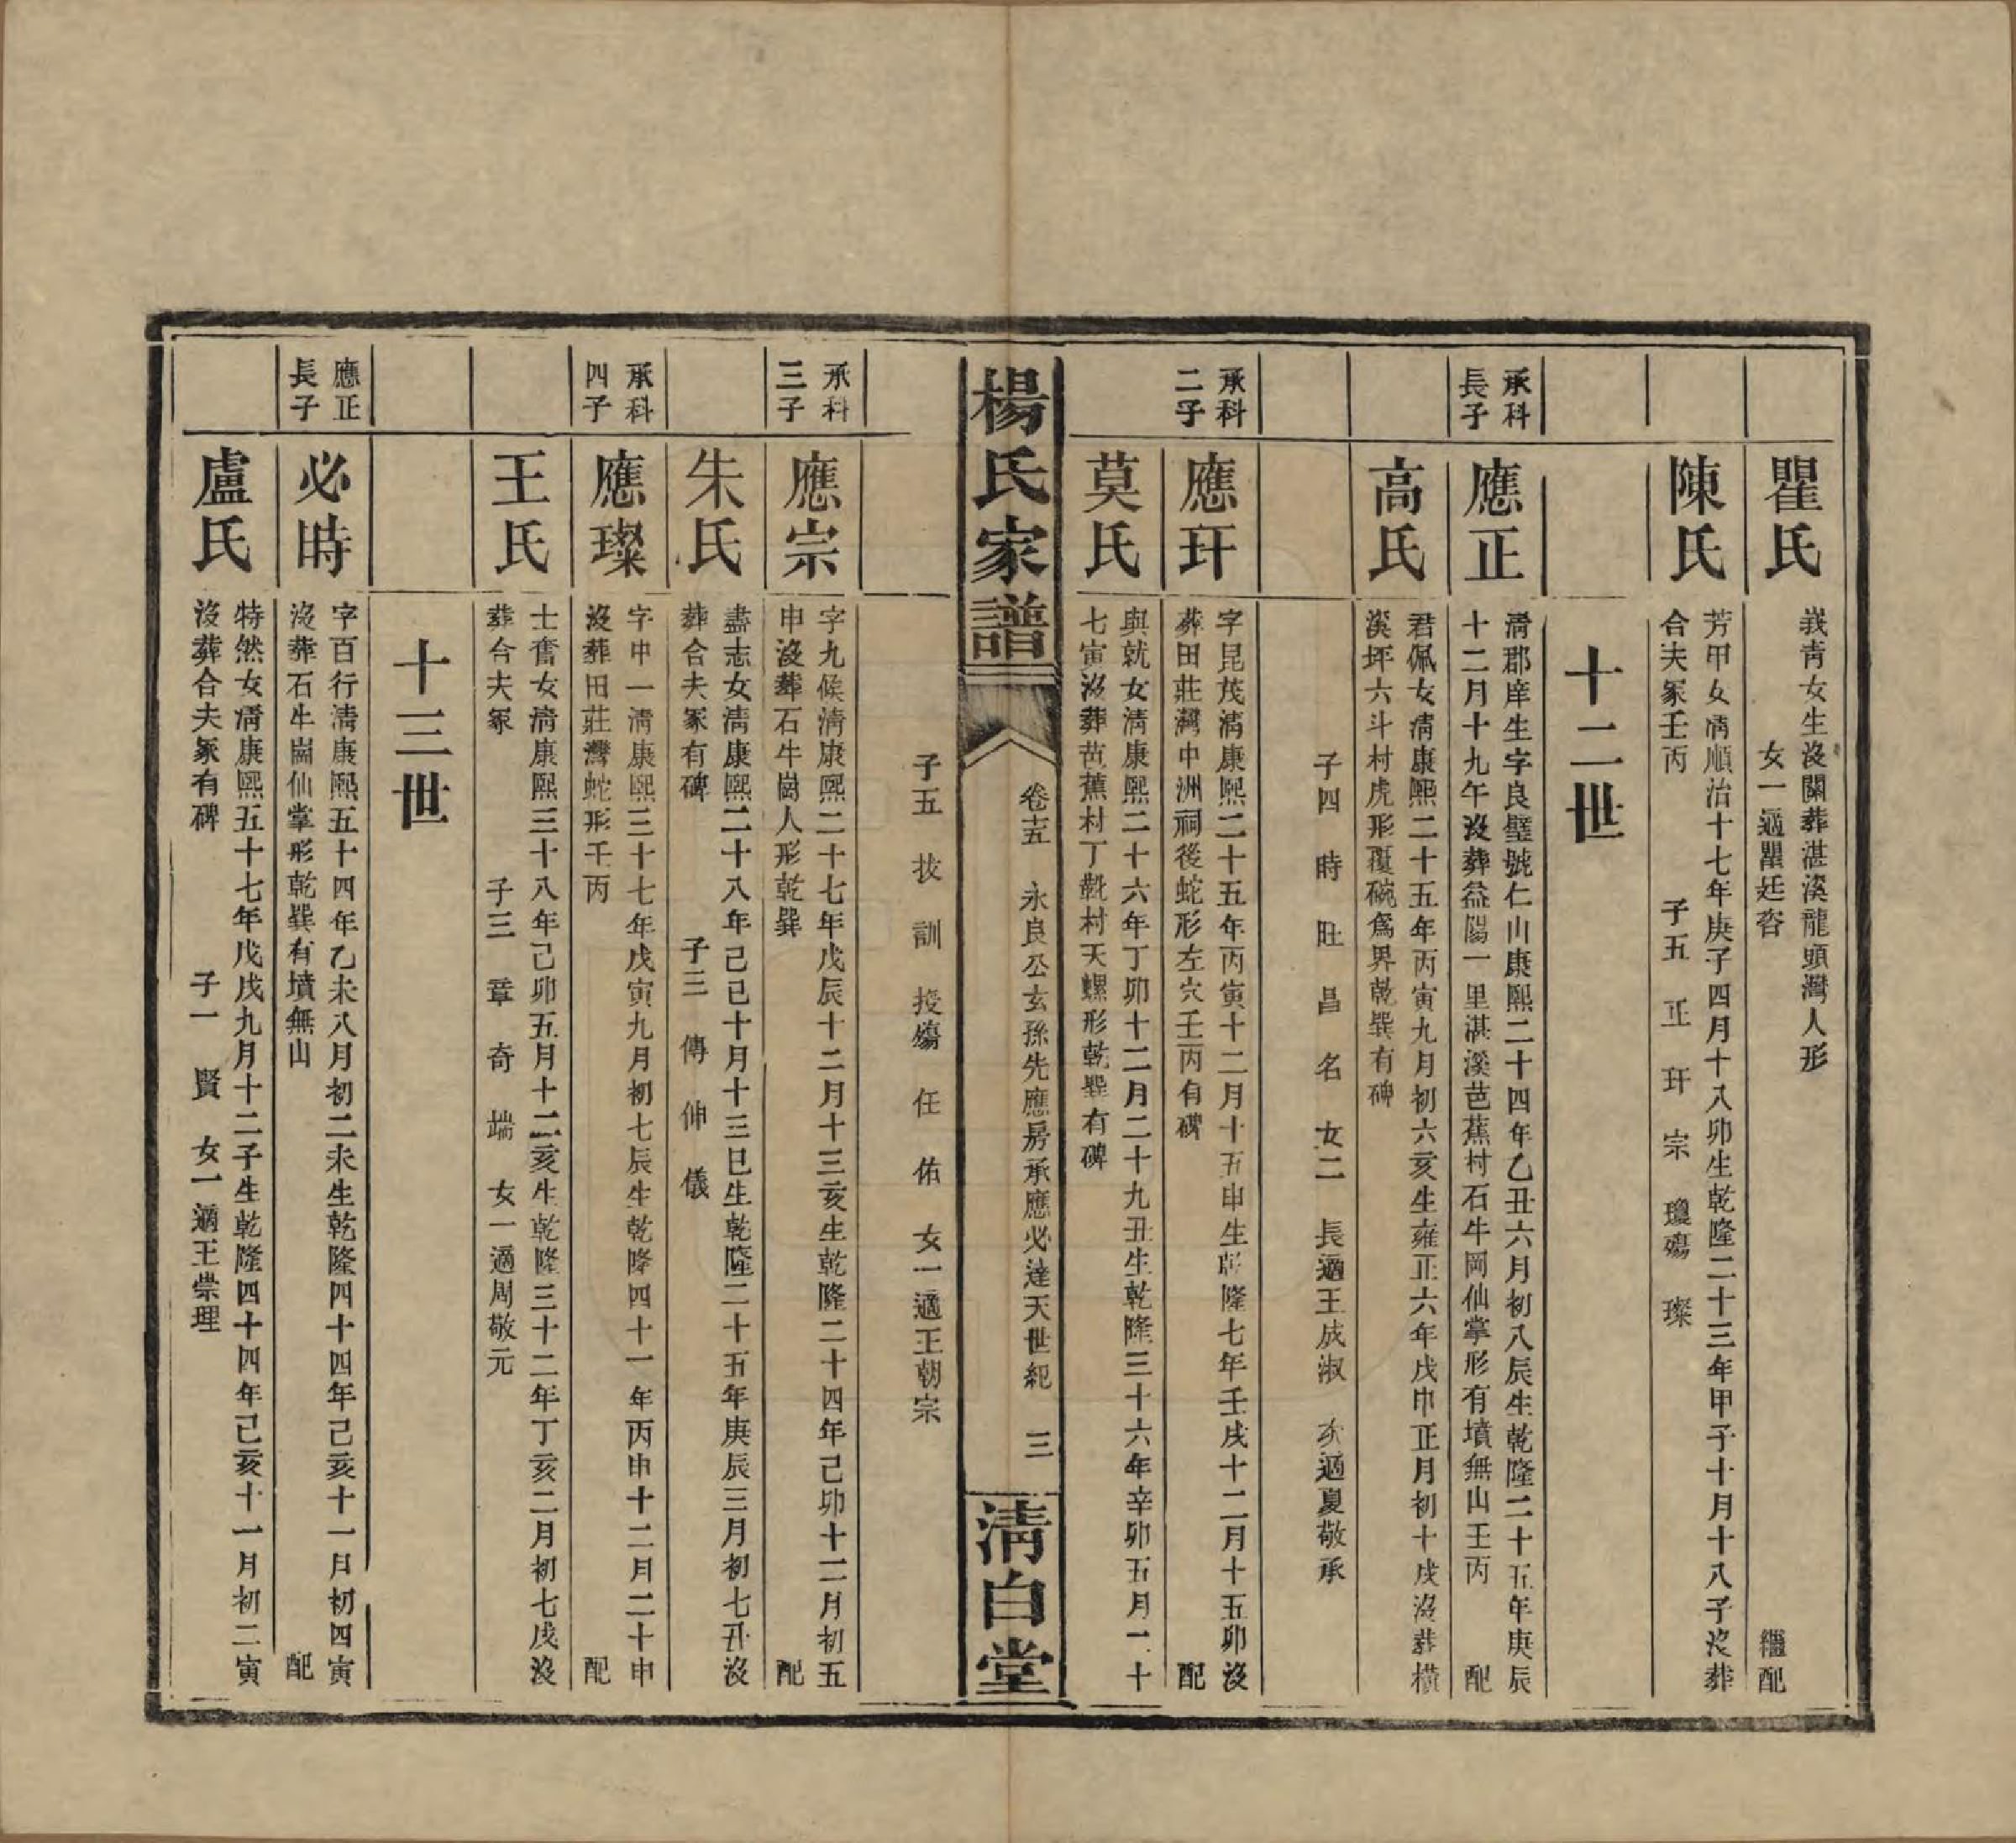 瞿氏
峩青女生沒闕葬湛溪龍頭灣人形
女一適瞿廷沓 繼配
陳氏
芳甲女淸順治十七年庚子四月十八卯生乾隆二十三年甲子十月十八子沒葬
合夫冢壬丙 子五 正 玕 宗 瓊殤 璨
十二世
承科
長子
應正
淸郡庠生字良璧號仁山康熙二十四年乙丑六月初八辰生乾隆二十五年庚辰
十二月十九午沒葬益陽一里湛溪芭蕉村石牛岡仙掌形有墳無山壬丙 配
高氏
君佩女淸康熙二十五年丙寅九月初六亥生雍正六年戊申正月初十戌沒葬橫
溪坪六斗村虎形覆碗爲界乾巽有碑
子四 時 旺 昌 名 女二 長適王成淑 次適夏敬承
承科
二子
應玕
字昆茂淸康熙二十五年丙寅十二月十五申生乾隆七年壬戌十二月十五卯沒
葬田莊灣中洲祠後蛇形左穴壬丙有碑 配
莫氏
與就女淸康熙二十六年丁卯十二月二十九丑生乾隆三十六年辛卯五月二十
七寅沒葬芭蕉村丁㲄村天螺形乾巽有碑
楊氏家譜
卷十五 永良公玄孫先應房承應必達天世紀 三
淸白堂
子五 技 訓 授殤 任 佑 女一適王朝宗
承科
三子
應宗
字九候淸康熙二十七年戊辰十二月十三亥生乾隆二十四年己卯十二月初五
申沒葬石牛崗人形乾巽 配
朱氏
盡志女淸康熙二十八年己巳十月十三巳生乾隆二十五年庚辰三月初七丑沒
葬合夫冢有碑 子三 傳 伸 儀
承科
四子
應璨
字中一淸康熙三十七年戊寅九月初七辰生乾隆四十一年丙申十二月二十申
沒葬田莊灣蛇形壬丙 配
王氏
士奮女淸康熙三十八年己卯五月十二亥生乾隆三十二年丁亥二月初七戌沒
葬合夫冢 子三 章 奇 端 女一適周敬元
十三世
應正
長子
必時
字百行淸康熙五十四年乙未八月初二未生乾隆四十四年己亥十一月初四寅
沒葬石牛崗仙掌形乾巽有墳無山 配
盧氏
特然女淸康熙五十七年戊戌九月十二子生乾隆四十四年己亥十一月初二寅
沒葬合夫冢有碑 子一 賢 女一適王崇理